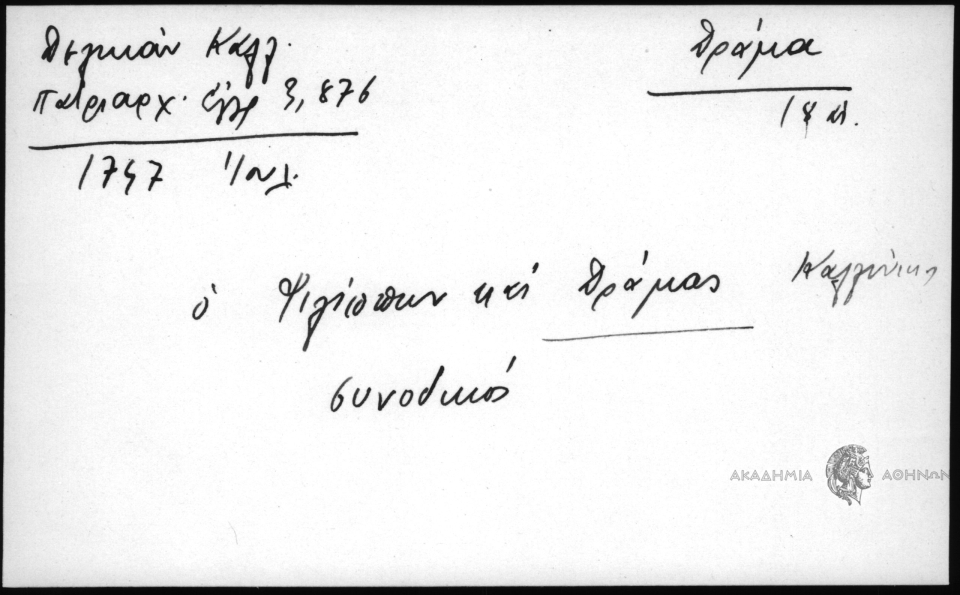 Δελικάν Καλλ.
Πατριαρχ. ἔγγρ 3, 876
1757 Ἰουλ.
Δράμα
18 αἰ.
ὁ Φιλίππων καί Δράμας Καλλίνικος
συνοδικός
ΑΚΑΔΗΜΙΑ ΑΘΗΝΩΝ